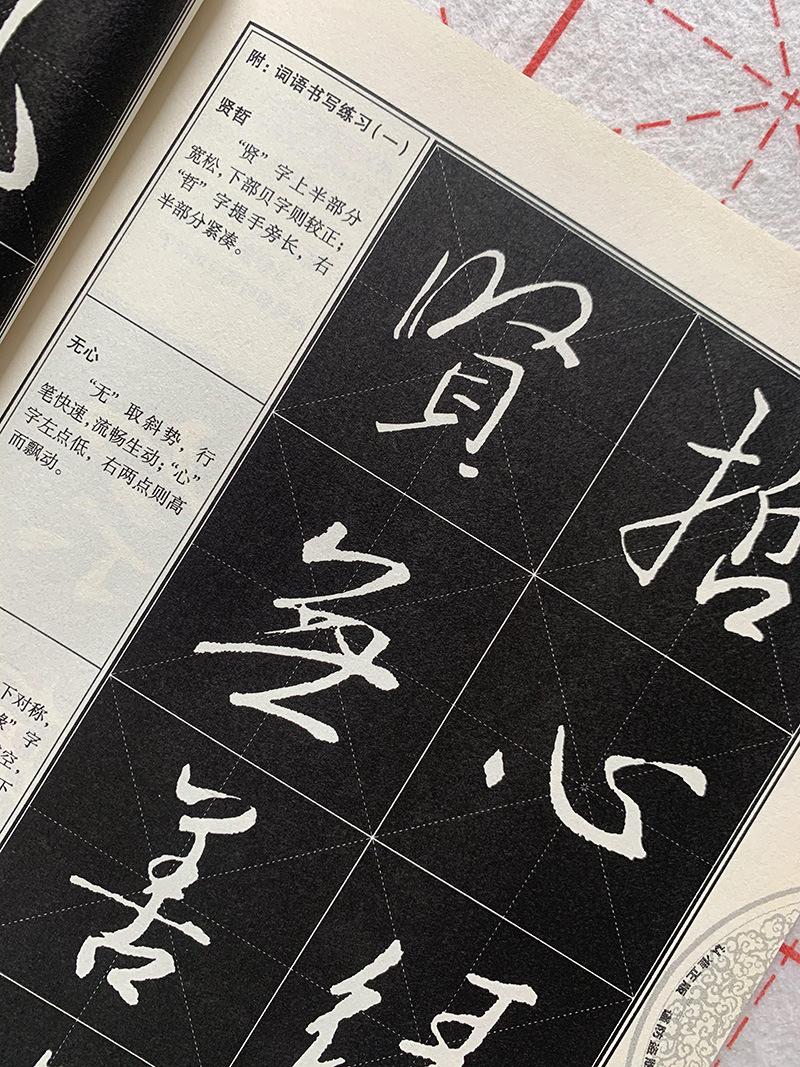 附：词语书写练习（一）
贤哲
“贤”字上半部分
宽松，下部贝字则较正；
“哲”字提手旁长，右
半部分紧凑。
賢哲
无心
“无”取斜势，行
笔快速，流畅生动；“心”
字左点低，右两点则高
而飘动。
無心
下对称，
”字
空，
下
善
认准正版 谨防盗版